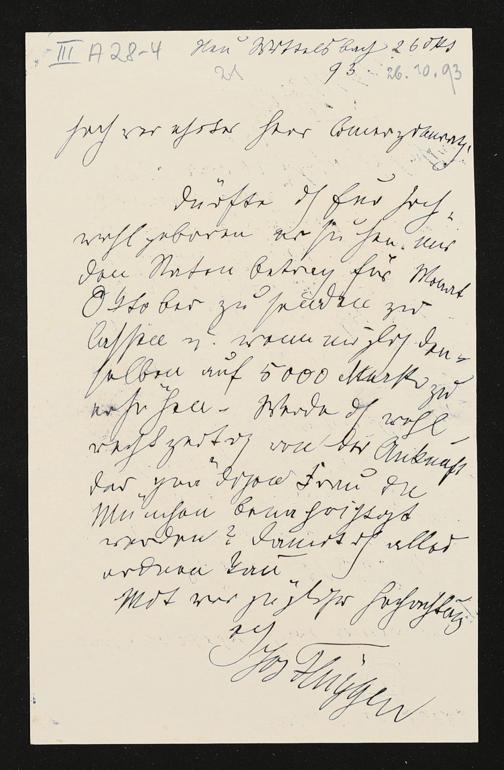 III A 28-4 Neu Wittelsbach 26 Okt
21 93 26.10.93
Hoch verehrter Herr Comerzienrath,
Dürfte ich Euer Hoch-
wohlgeboren ersuchen mir
den Raten betrag für Monat
Oktober zu senden zu
lassen u. wenn möglich den-
selben auf 5000 Mark zu
erhöhen - Werde ich wohl
rechtzeitig von der Ankunft
der gnädigen Frau in
München benachrichtigt
werden? Damit ich alles
ordnen kan
Mit vorzüglicher Hochachtung